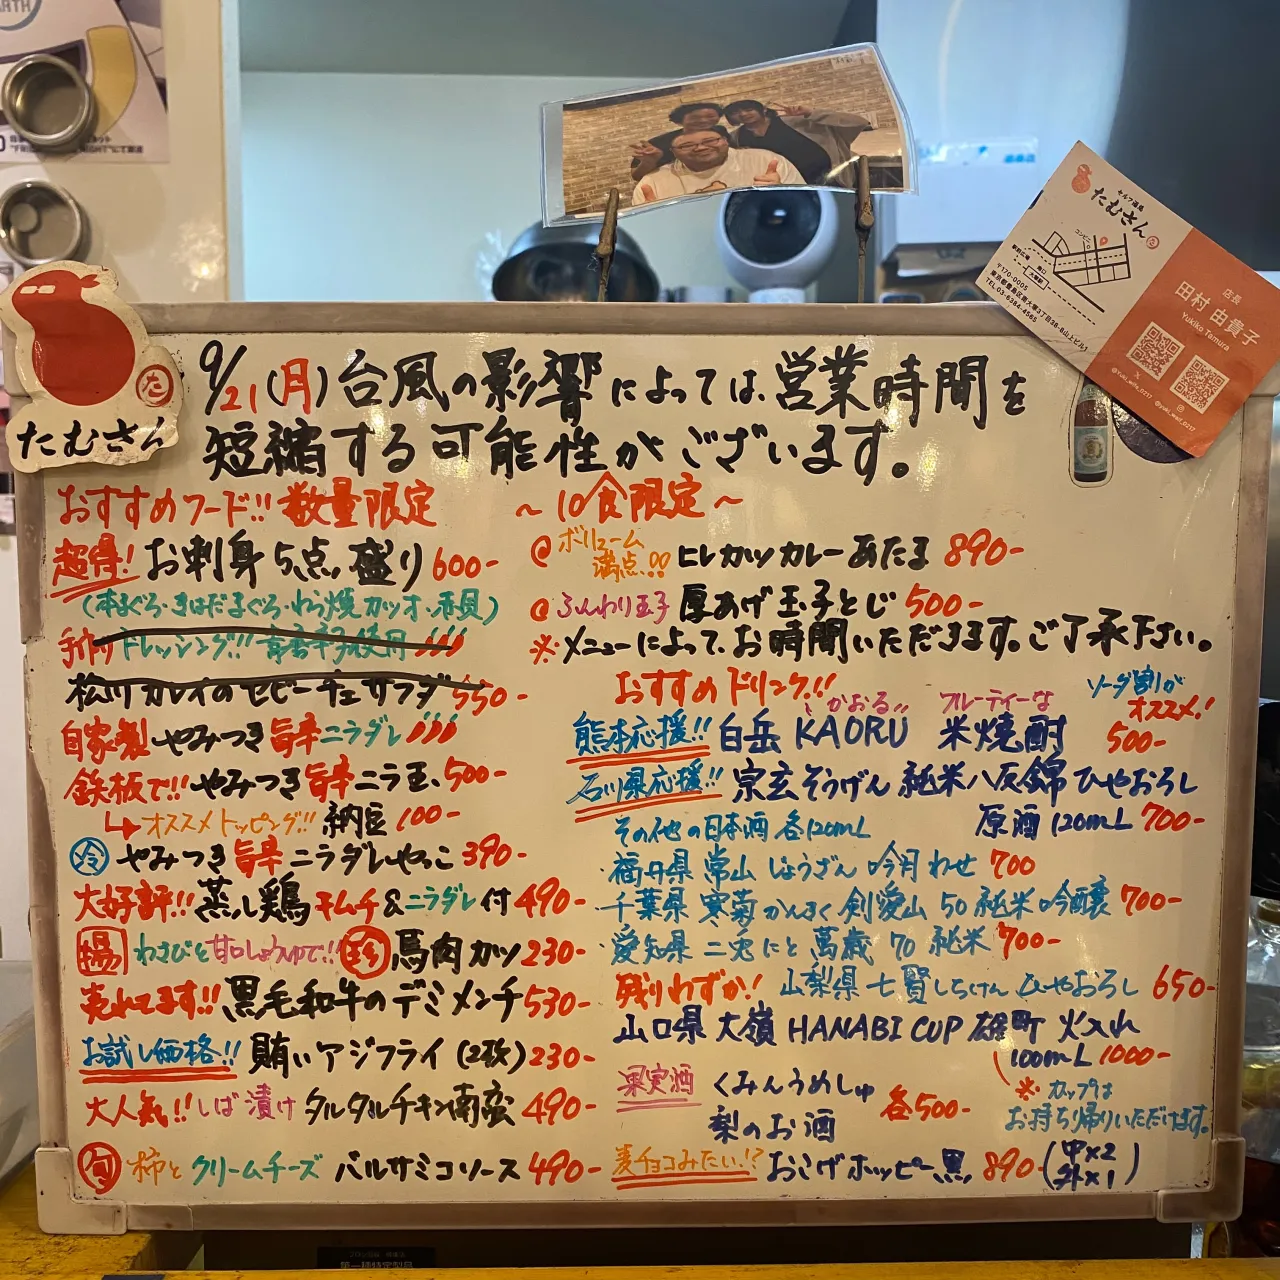 たむさん
セルフ酒場
たむさん
コンビニ
〒170-0005
東京都豊島区南大塚3丁目38-8山上ビル1
TEL.03-6384-4565
店長
田村 由貴子
Yukiko Tamura
9/21(月)台風の影響によっては、営業時間を
短縮する可能性がございます。
おすすめフード!! 数量限定
超得! お刺身 5点 盛り 600-
(本まぐろ・きはだまぐろ・わら焼カツオ・赤貝)
手作りドレッシング!! 青唐辛子使用
松川カレイのセビーチェサラダ 550
自家製 やみつき旨辛ニラダレ
鉄板で!! やみつき旨辛ニラ玉 500-
オススメトッピング!! 納豆 100-
冷 やみつき旨辛ニラダレやっこ 390-
大好評!! 蒸し鶏 キムチ&ニラダレ付 490-
揚 わさびと甘口しょうゆで!! 珍 馬肉カツ 230-
売れてます!! 黒毛和牛のデミメンチ 530-
お試し価格!! 賄いアジフライ (2枚) 230-
大人気!! しば漬け タルタルチキン南蛮 490-
旬 柿とクリームチーズ バルサミコソース 490-
~10食限定~
ボリューム
満点!! ヒレカツカレーあたま 890-
ふんわり玉子 厚あげ玉子とじ 500-
※メニューによって、お時間いただきます。ご了承下さい。
おすすめドリンク!!
かおる フルーティーな ソーダ割が
オススメ!
熊本応援!! 白岳 KAORU 米焼酎 500-
石川県応援!! 宗玄 そうげん 純米 八反錦 ひやおろし
その他の日本酒 各120mL 原酒 120mL 700-
福井県 常山 じょうざん 吟月 わせ 700
千葉県 寒菊 かんきく 剣愛山 50 純米吟醸 700-
愛知県 二兎 にと 萬歳 70 純米 700-
残りわずか! 山梨県 七賢 しちけん ひやおろし 650-
山口県 大嶺 HANABI CUP 雄町 火入れ
100mL 1000-
※カップは
お持ち帰りいただけます。
果実酒 くみんうめしゅ
梨のお酒 各500-
麦チョコみたい!? おこげホッピー黒 890- (中×2
外×1)